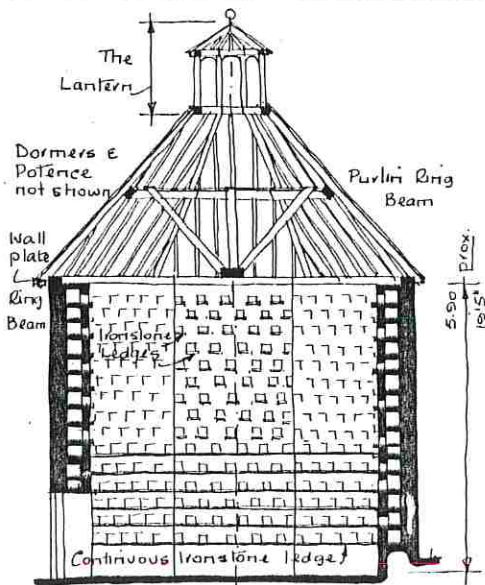 The
Lantern
Dormers &
Potence
not shown
Purlin Ring
Beam
Wall
plate
Ring
Beam
Ironstone
Ledges
5.90
prox.
19'5"
Continuous Ironstone ledge